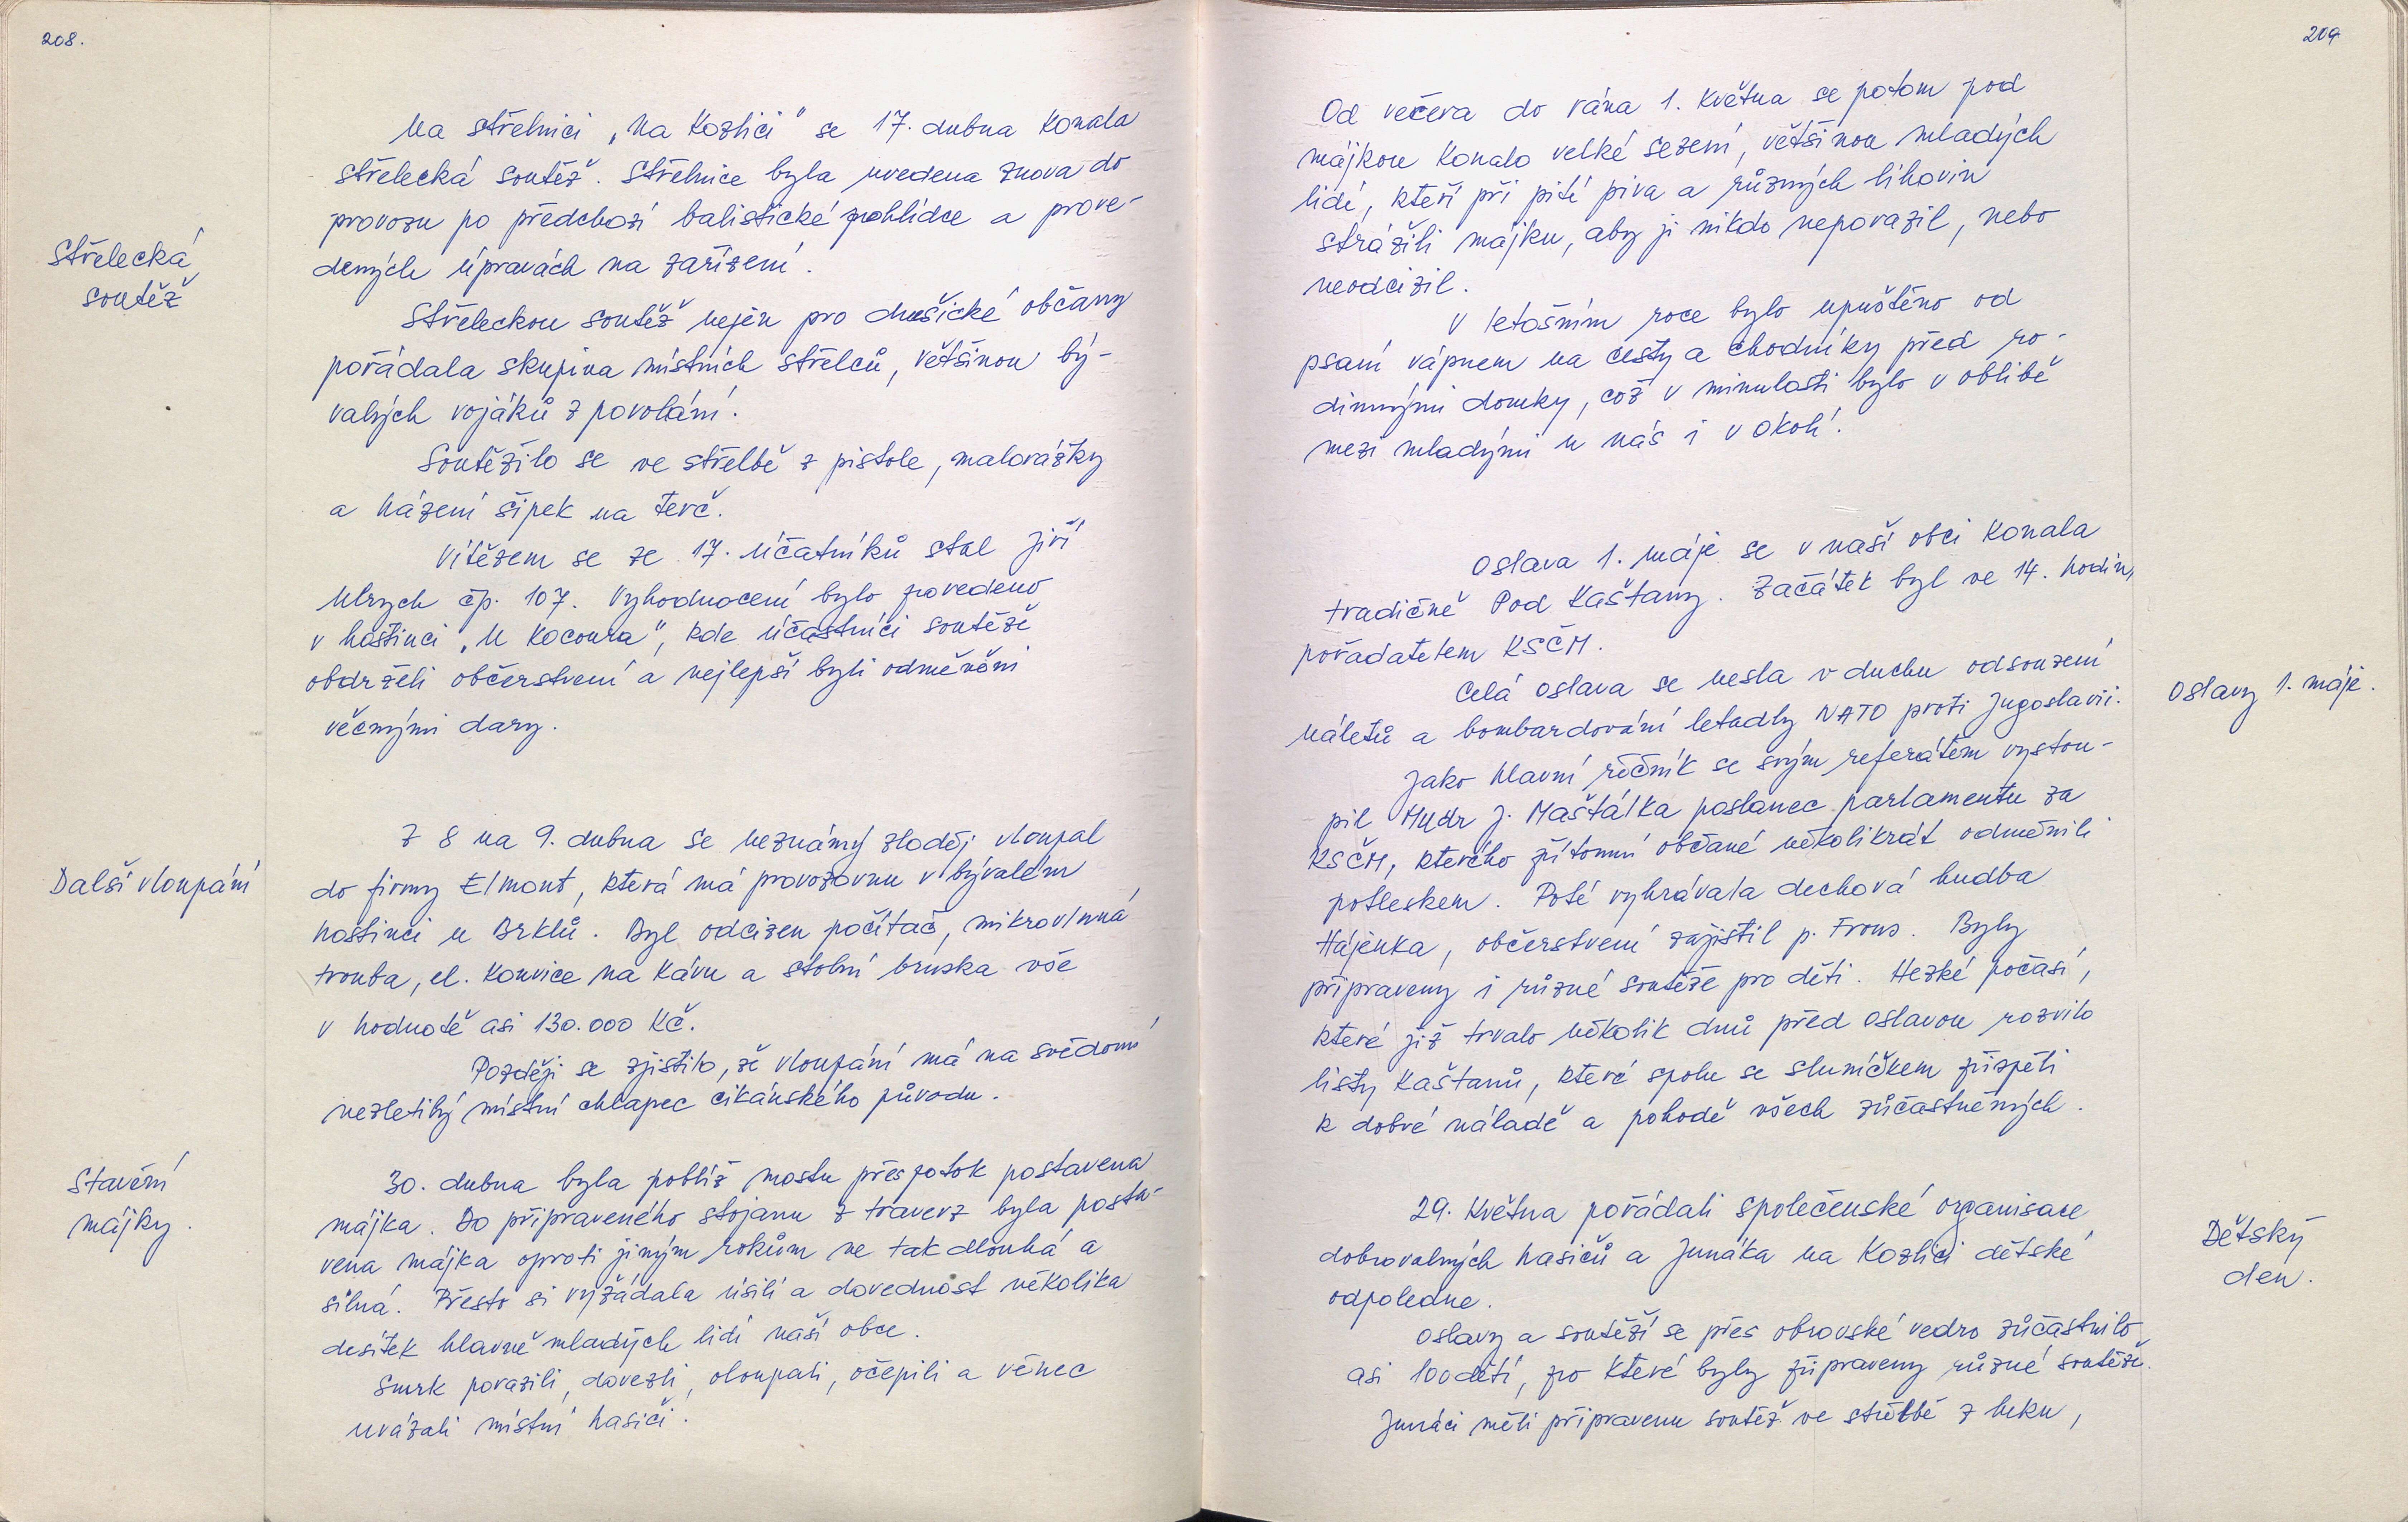 208.
Na střelnici „Na Kozlici" se 17. dubna konala
střelecká soutěž. Střelnice byla uvedena znova do
provozu po předchozí balistické prohlídce a prove-
dených úpravách na zařízení.
Střelecká
soutěž
Střeleckou soutěž nejen pro dušické občany
pořádala skupina místních střelců, většinou bý-
valých vojáků z povolání.
Soutěžilo se ve střelbě z pistole, malorážky
a házení šipek na terč.
Vítězem se ze 17. účatníků stal Jiří
Ulrych čp. 107. Vyhodnocení bylo povedeno
v hostinci „U Kocoura", kde účastníci soutěže
obdrželi občerstvení a nejlepší byli odměněni
věcnými dary.
Další vloupání
Z 8 na 9. dubna se neznámý zloděj vloupal
do firmy Elmont, která má provozovnu v bývalém
hostinci u Brklů. Byl odcizen počítač, mikrovlnná
trouba, el. konvice na kávu a stolní bruska vše
v hodnotě asi 130.000 Kč.
Později se zjistilo, že vloupání má na svědomí
nezletilý místní chlapec cikánského původu.
Stavění
májky.
30. dubna byla poblíž mostu přes potok postavena
májka. Do připraveného stojanu z traverz byla posta-
vena májka oproti jiným rokům ne tak dlouhá a
silná. Přesto si vyžádala úsilí a dovednost několika
desítek hlavně mladých lidí naší obce.
Smrk porazili, dovezli, oloupali, očepili a věnec
uvázali místní hasiči.
209
Od večera do rána 1. května se potom pod
májkou konalo velké sezení, většinou mladých
lidí, kteří při pití piva a různých lihovin
strážili májku, aby ji nikdo neporazil, nebo
neodcizil.
V letošním roce bylo upuštěno od
psaní vápnem na cesty a chodníky před ro-
dinnými domky, což v minulosti bylo v oblibě
mezi mladými u nás i v okolí.
Oslava 1. máje se v naší obci konala
tradičně Pod Kaštany. Začátek byl ve 14. hodin,
pořadatelem KSČM.
Oslavy 1. máje.
Celá oslava se nesla v duchu odsouzení
náletů a bombardování letadly NATO proti Jugoslavii.
Jako hlavní řečník se svým referátem vystou-
pil Mudr J. Maštálka poslanec parlamentu za
KSČM, kterého přítomní občané několikrát odměnili
potleskem. Poté vyhrávala dechová hudba
Hájenka, občerstvení zajistil p. Frous. Byly
připraveny i různé soutěže pro děti. Hezké počasí,
které již trvalo několik dnů před oslavou rozvilo
listy kaštanů, které spolu se sluníčkem přispěli
k dobré náladě a pohodě všech zůčastněných.
Dětský
den.
29. května pořádali společenské organisace
dobrovolných hasičů a Junáka na Kozlici dětské
odpoledne.
Oslavy a soutěží se přes obrovské vedro zůčastnilo
asi 100 dětí, pro které byly připraveny různé soutěže.
Junáci měli připravenu soutěž ve střelbě z luku,